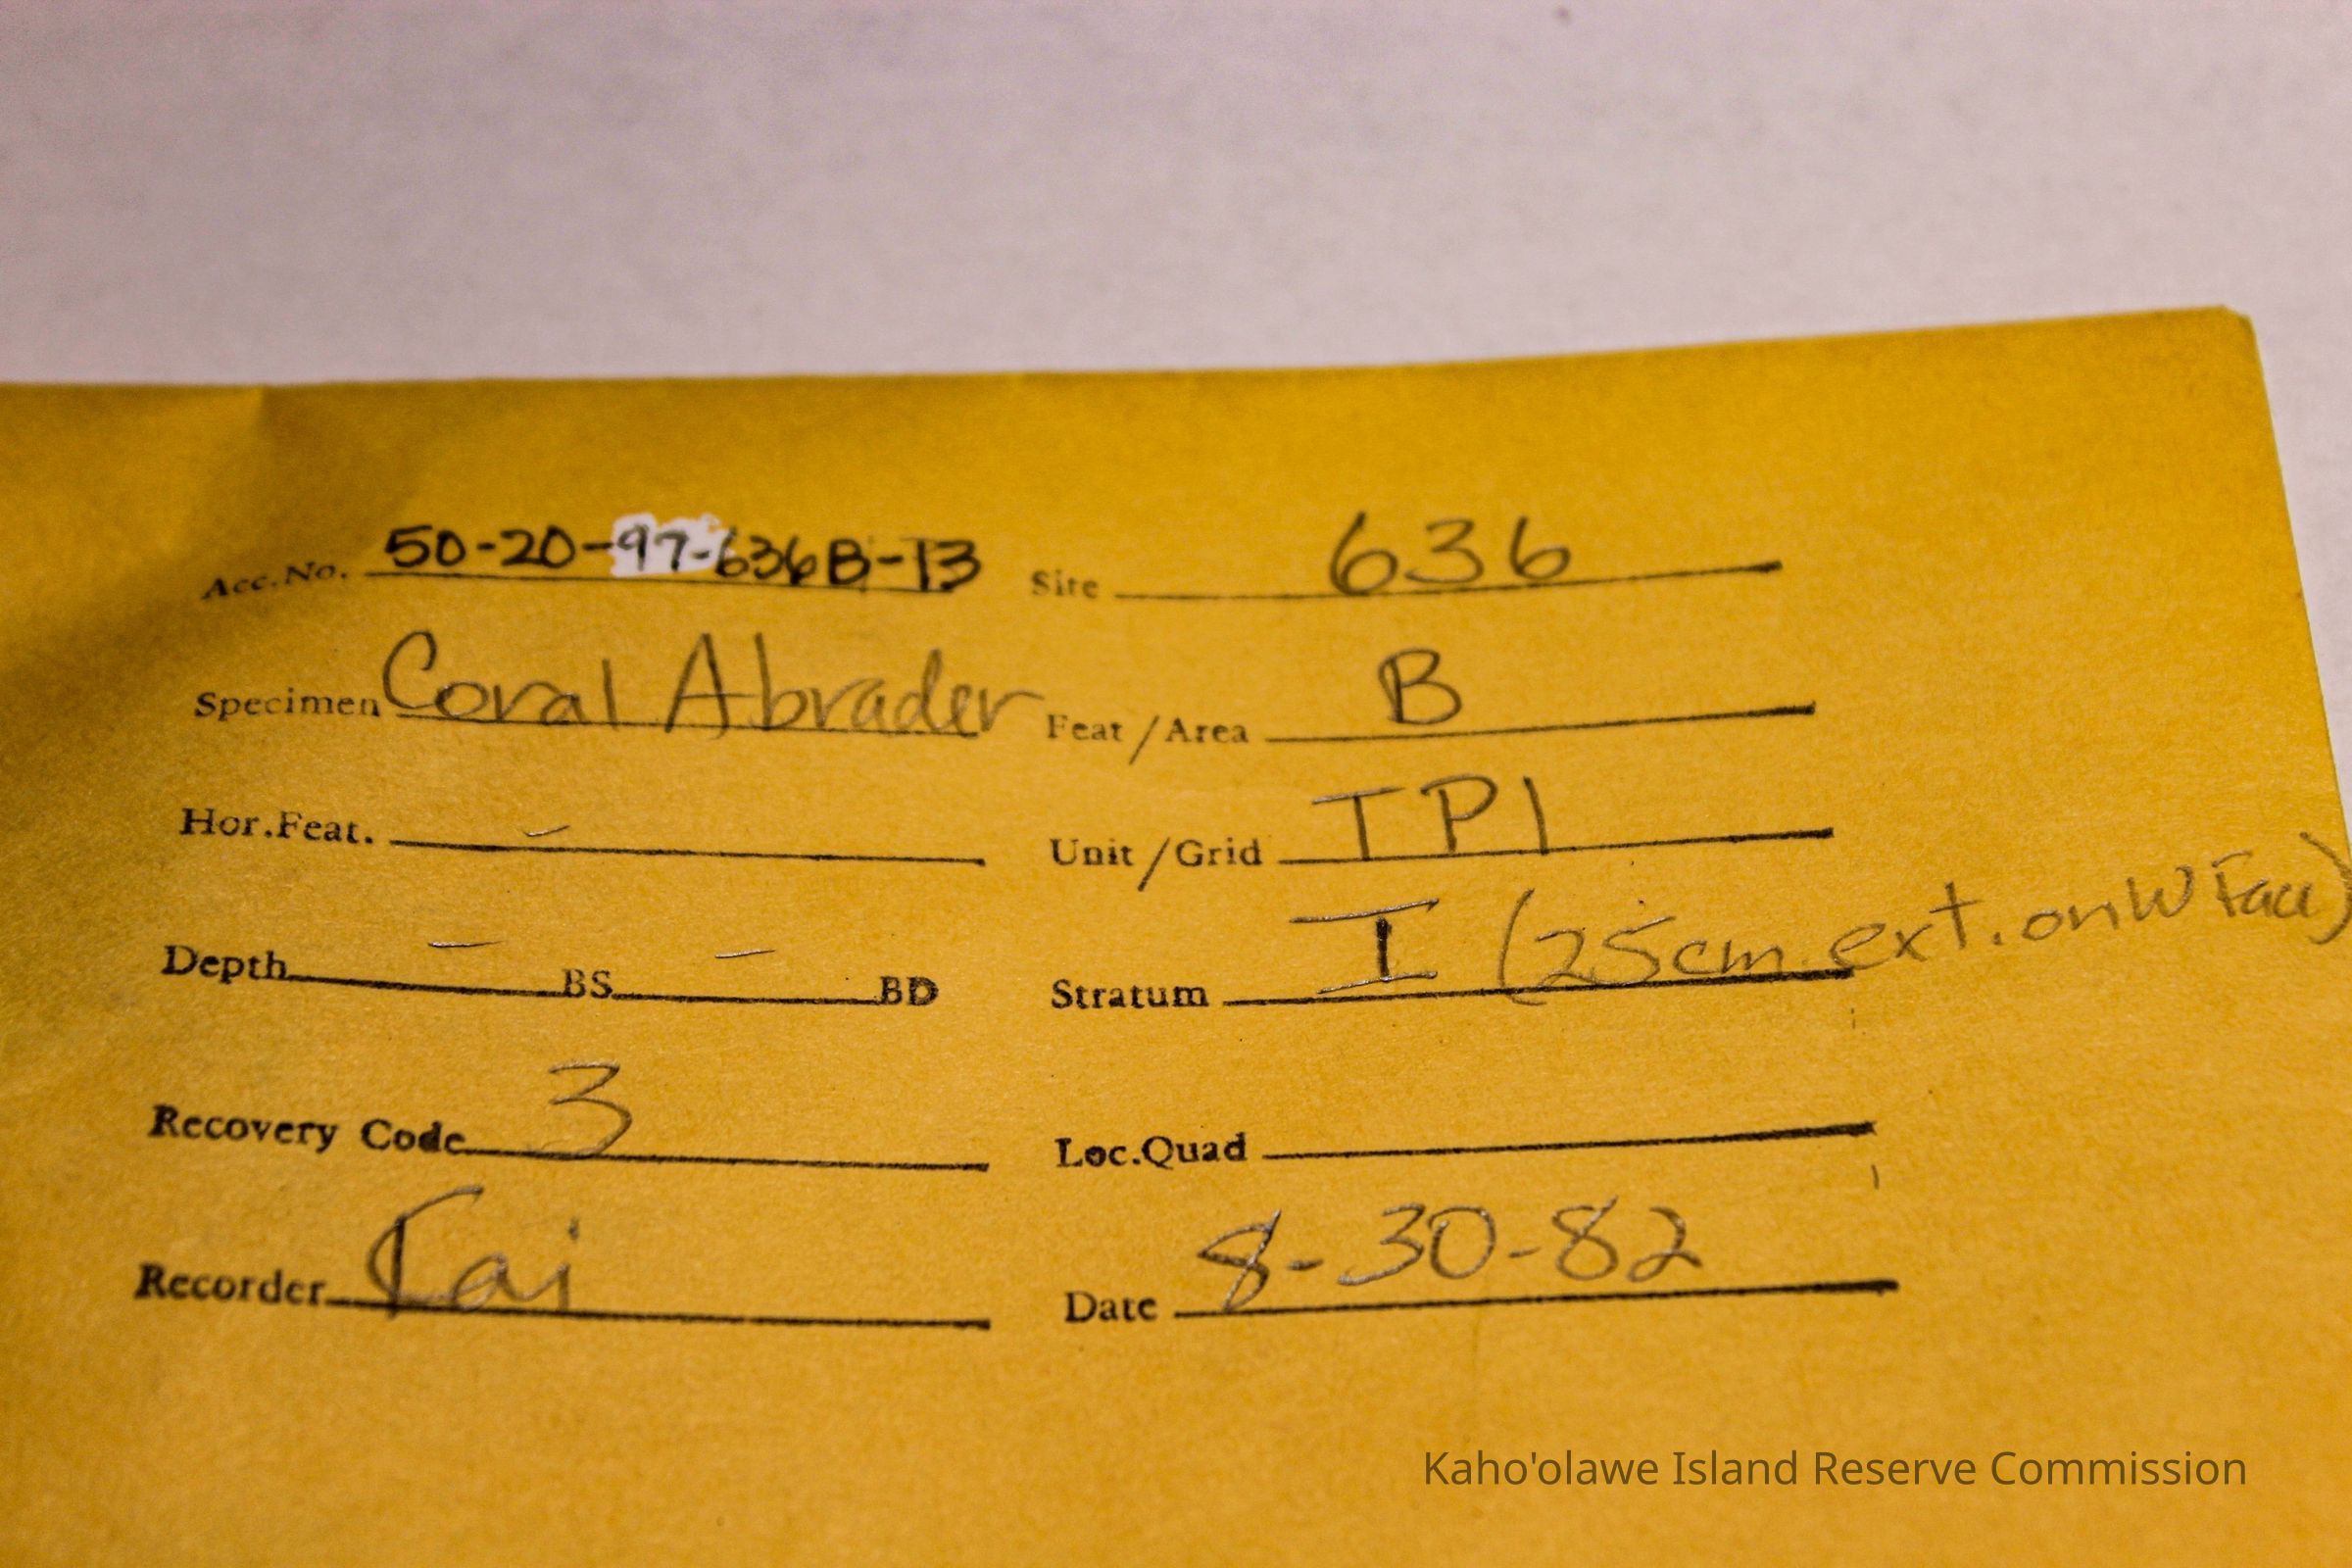 Acc.No. 50-20-97-636B-13 Site 636
Specimen Coral Abrader Feat/Area B
Hor.Feat. - Unit/Grid TP1
Depth - BS - BD Stratum I (25cm ext. on W Face)
Recovery Code 3 Loc.Quad
Recorder Kai Date 8-30-82
Kaho'olawe Island Reserve Commission